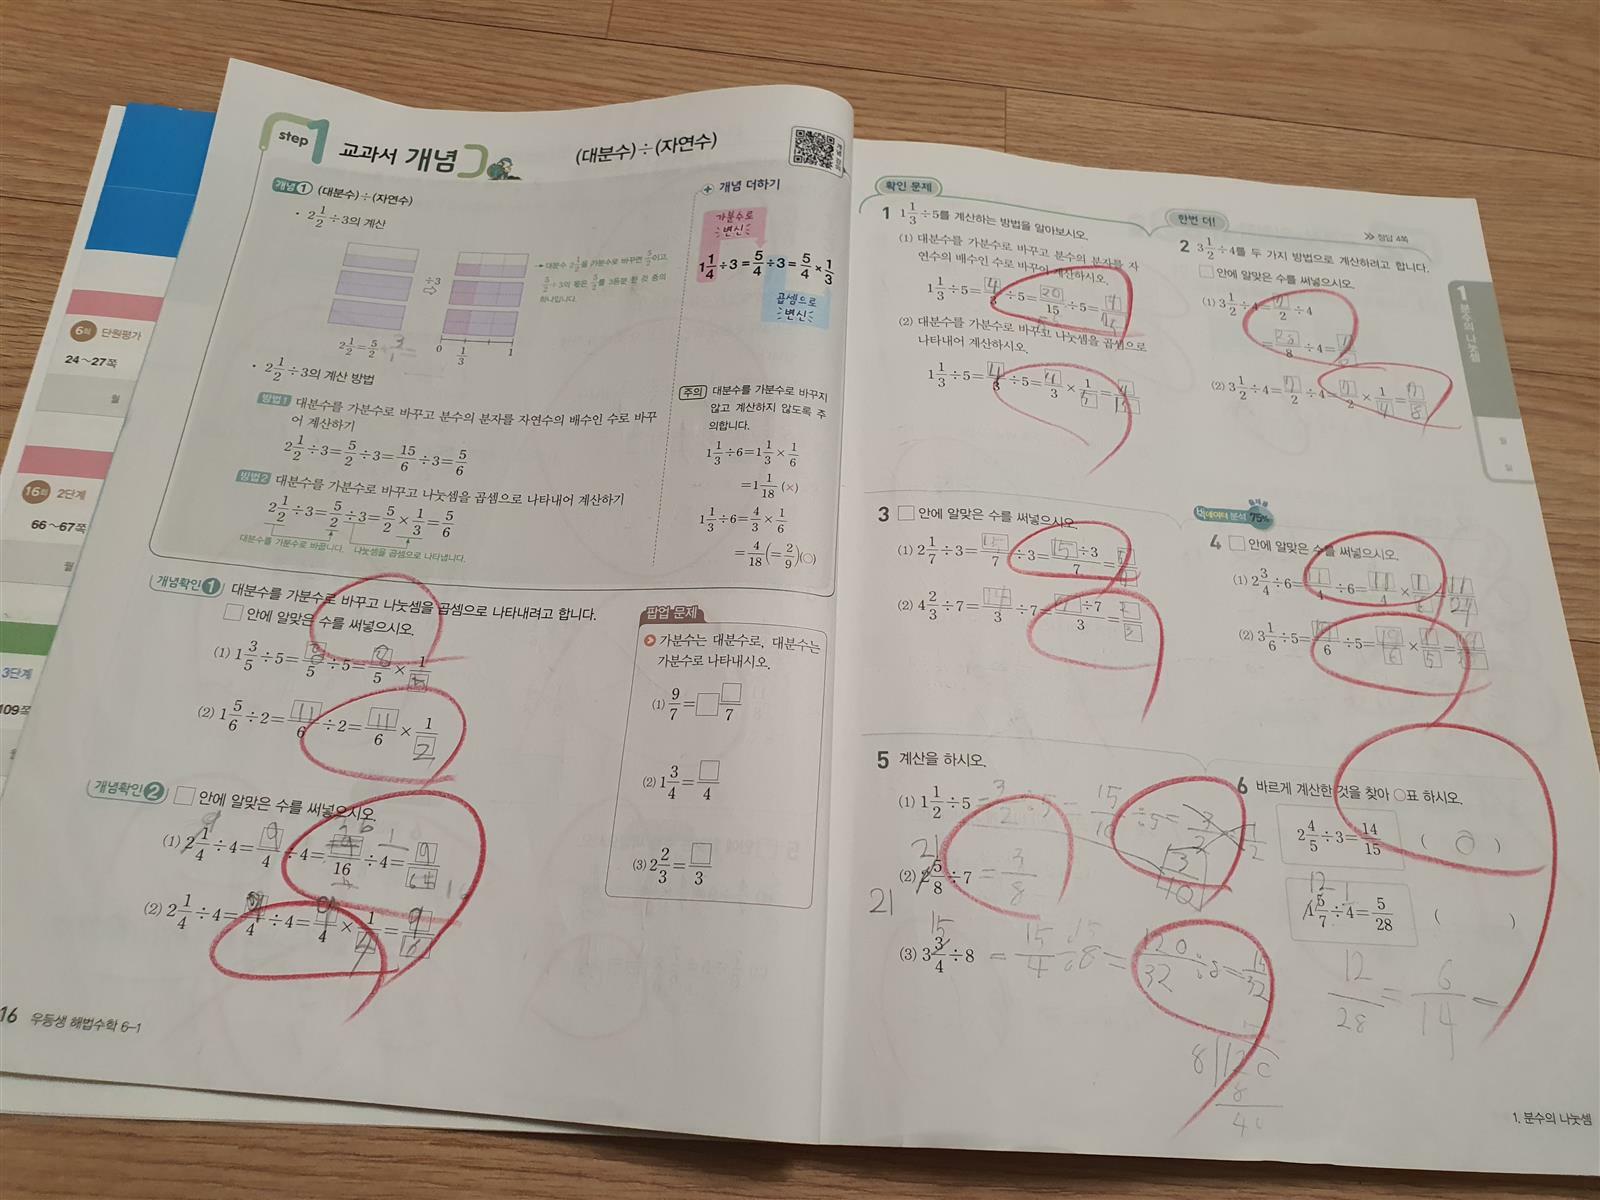 6회 단원평가
24~27쪽
월
16회 2단계
66~67쪽
월
3단계
109쪽
step 1 교과서 개념
(대분수)÷(자연수)
개념 1 (대분수)÷(자연수)
• 2 1/2 ÷3의 계산
÷3
→ 대분수 2 1/2을 가분수로 바꾸면 5/2이고
5/2÷3의 몫은 5/2를 3등분 한 것 중의
하나입니다.
2 1/2 = 5/2
0 1/3 1
• 2 1/2 ÷3의 계산 방법
방법1 대분수를 가분수로 바꾸고 분수의 분자를 자연수의 배수인 수로 바꾸
어 계산하기
2 1/2 ÷3= 5/2 ÷3= 15/6 ÷3= 5/6
방법2 대분수를 가분수로 바꾸고 나눗셈을 곱셈으로 나타내어 계산하기
2 1/2 ÷3= 5/2 ÷3= 5/2 × 1/3 = 5/6
대분수를 가분수로 바꿉니다. 나눗셈을 곱셈으로 나타냅니다.
+ 개념 더하기
가분수로
변신
1 1/4 ÷3= 5/4 ÷3= 5/4 × 1/3
곱셈으로
변신
주의 대분수를 가분수로 바꾸지
않고 계산하지 않도록 주
의합니다.
1 1/3 ÷6=1 1/3 × 1/6
=1 1/18 (×)
1 1/3 ÷6= 4/3 × 1/6
= 4/18 (= 2/9)(○)
개념확인 1 대분수를 가분수로 바꾸고 나눗셈을 곱셈으로 나타내려고 합니다.
□ 안에 알맞은 수를 써넣으시오.
(1) 1 3/5 ÷5= 8/5 ÷5= 8/5 × 1/5
(2) 1 5/6 ÷2= 11/6 ÷2= 11/6 × 1/2
개념확인 2 □ 안에 알맞은 수를 써넣으시오.
(1) 2 1/4 ÷4= 9/4 ÷4= /16 ÷4= 9/
(2) 2 1/4 ÷4= 9/4 ÷4= 9/4 × 1/4 = 9/
팝업 문제
가분수는 대분수로, 대분수는
가분수로 나타내시오.
(1) 9/7 = □ □/7
(2) 1 3/4 = □/4
(3) 2 2/3 = □/3
16 우등생 해법수학 6-1
확인 문제
1 1 1/3 ÷5를 계산하는 방법을 알아보시오.
(1) 대분수를 가분수로 바꾸고 분수의 분자를 자
연수의 배수인 수로 바꾸어 계산하시오.
1 1/3 ÷5= 4/3 ÷5= 20/15 ÷5= 4/15
(2) 대분수를 가분수로 바꾸고 나눗셈을 곱셈으로
나타내어 계산하시오.
1 1/3 ÷5= 4/3 ÷5= 4/3 × 1/5 = 4/15
한번 더!
≫ 정답 4쪽
2 3 1/2 ÷4를 두 가지 방법으로 계산하려고 합니다.
□ 안에 알맞은 수를 써넣으시오.
(1) 3 1/2 ÷4= 7/2 ÷4
= 28/8 ÷4= 7/8
(2) 3 1/2 ÷4= 7/2 ÷4= 7/2 × 1/4 = 7/8
1 분수의 나눗셈
월
일
3 □ 안에 알맞은 수를 써넣으시오.
(1) 2 1/7 ÷3= 15/7 ÷3= 15÷3/7 = 5/7
(2) 4 2/3 ÷7= 14/3 ÷7= 14÷7/3 = 2/3
빅데이터 분석 출제율 75%
4 □ 안에 알맞은 수를 써넣으시오.
(1) 2 3/4 ÷6= 11/4 ÷6= 11/4 × 1/6 = 11/24
(2) 3 1/6 ÷5= 19/6 ÷5= 19/6 × 1/5 = 19/
5 계산을 하시오.
(1) 1 1/2 ÷5 = 3/2 ÷5 = 15/10 ÷5= 3/10
(2) 2 5/8 ÷7 = 3/8
21
21
15
(3) 3 3/4 ÷8 = 15/4 ÷8 = 120/32 ÷8 = 15/32
6 바르게 계산한 것을 찾아 ○표 하시오.
2 4/5 ÷3= 14/15 ( ○ )
12 1
1 5/7 ÷4= 5/28 ( )
12/28 = 6/14 =
1. 분수의 나눗셈